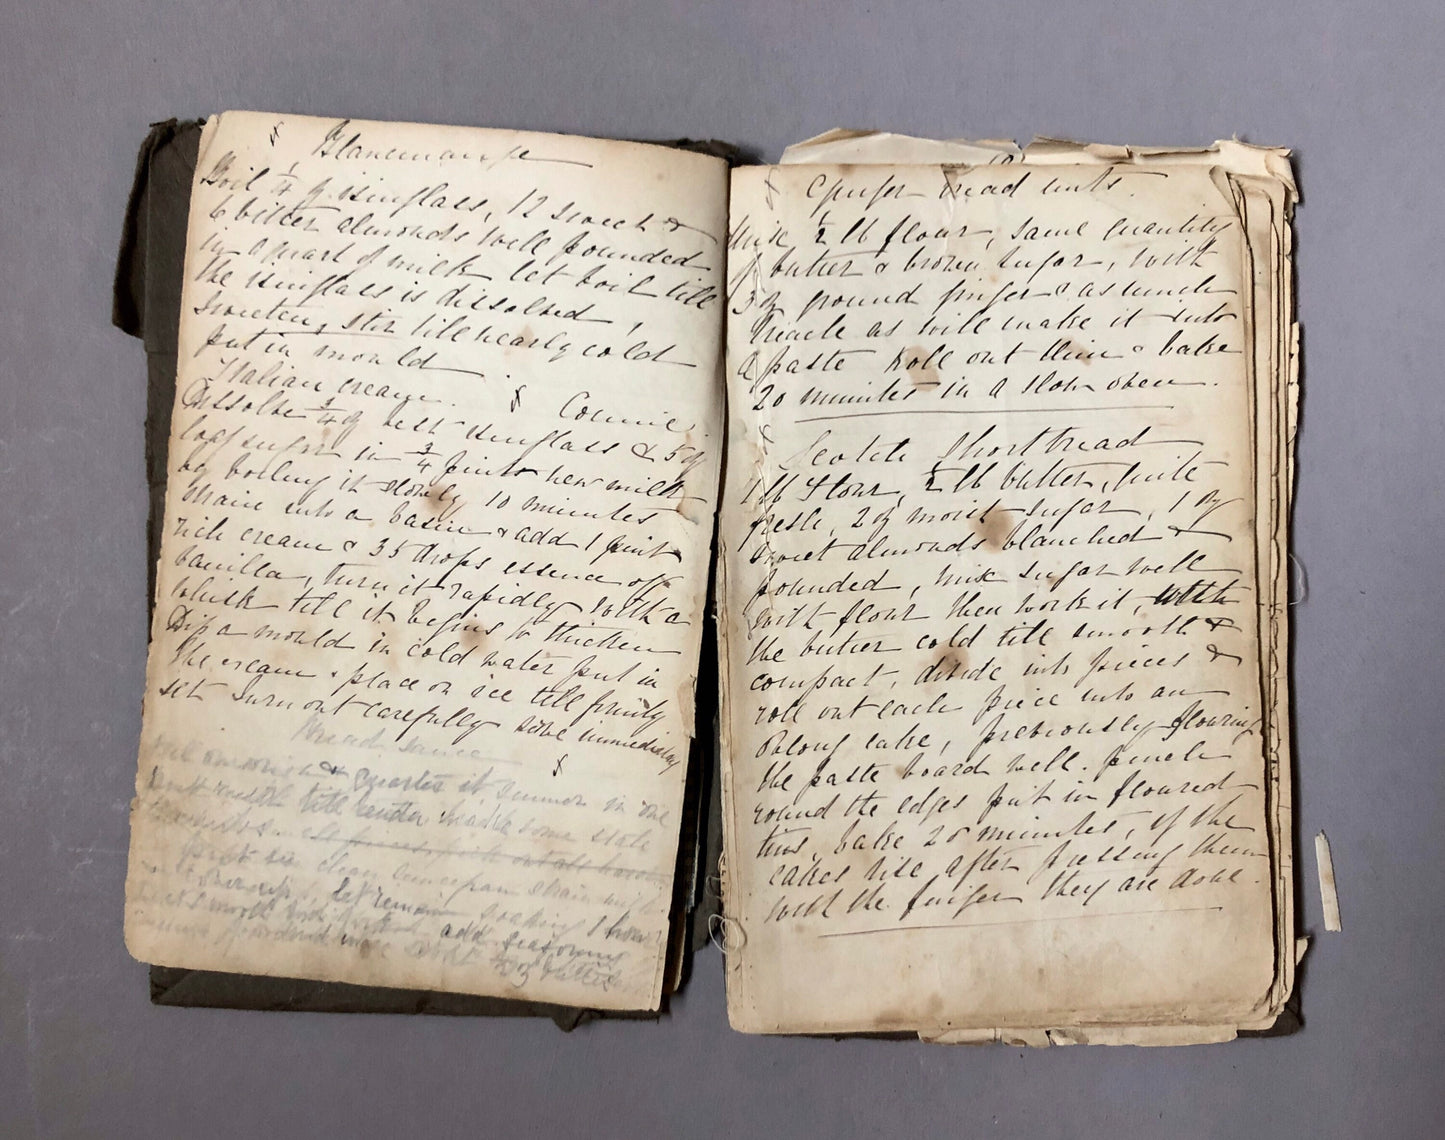 Blancmange
Boil 1/4 oz isinglass, 12 sweet &
6 bitter almonds well pounded
in a quart of milk let boil till
the isinglass is dissolved,
sweeten, stir till nearly cold
put in mould
Italian cream. Connie
Dissolve 3/4 oz best isinglass & 5 oz
loaf sugar in 3/4 pints new milk
by boiling it slowly 10 minutes
strain into a basin & add 1 pint
rich cream & 35 drops essence of
vanilla, turn it rapidly with a
whisk till it begins to thicken
Dip a mould in cold water put in
the cream & place on ice till firmly
set Turn out carefully serve immediately
Bread sauce
& quarter it, simmer in one
till tender some stale
small pieces, pick out all hard
put in clean saucepan strain
let remain soaking 1 hour
add seasoning
oz butter
Ginger bread nuts.
Mix 1/2 lb flour, same quantity
of butter & brown sugar, with
3 oz ground ginger & as much
treacle as will make it into
a paste Roll out thin & bake
20 minutes in a slow oven.
Scotch Shortbread
1 lb Flour, 1/2 lb butter, quite
fresh, 2 oz moist sugar, 1 oz
sweet almonds blanched &
pounded, mix sugar well
with flour then work it, with
the butter cold till smooth &
compact, divide into pieces &
roll out each piece into an
oblong cake, previously flouring
the paste board well. pinch
round the edges put in floured
tins, bake 20 minutes, if the
cakes rise after pressing them
with the finger they are done.